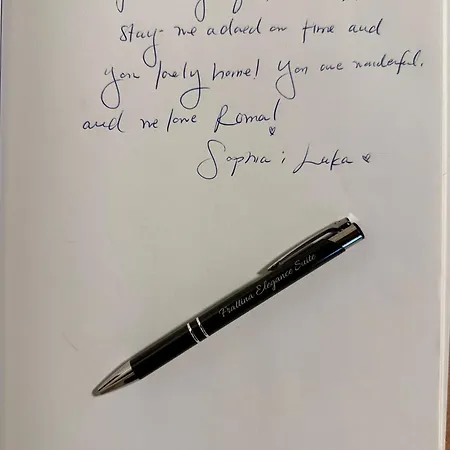 stay - we adored our time and
you lovely home! You are wonderful.
and we love Roma!
Sophia i Luka
Frattina Elegance Suite